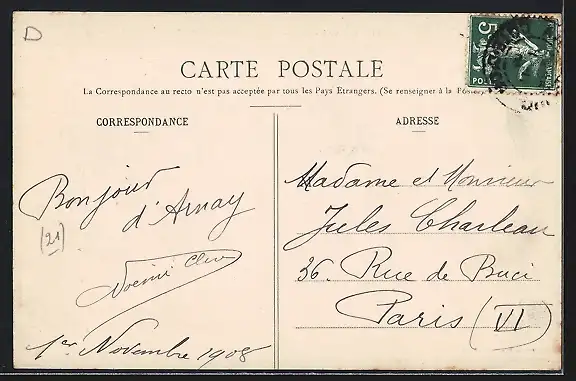 D
CARTE POSTALE
La Correspondance au recto n'est pas acceptée par tous les Pays Etrangers. (Se renseigner à la Poste)
CORRESPONDANCE
Bonjour
d'Arnay
(21)
Noémi
1er Novembre 1908
ADRESSE
Madame et Monsieur
Jules Charleau
36. Rue de Buci
Paris (VI)
5c
POSTES